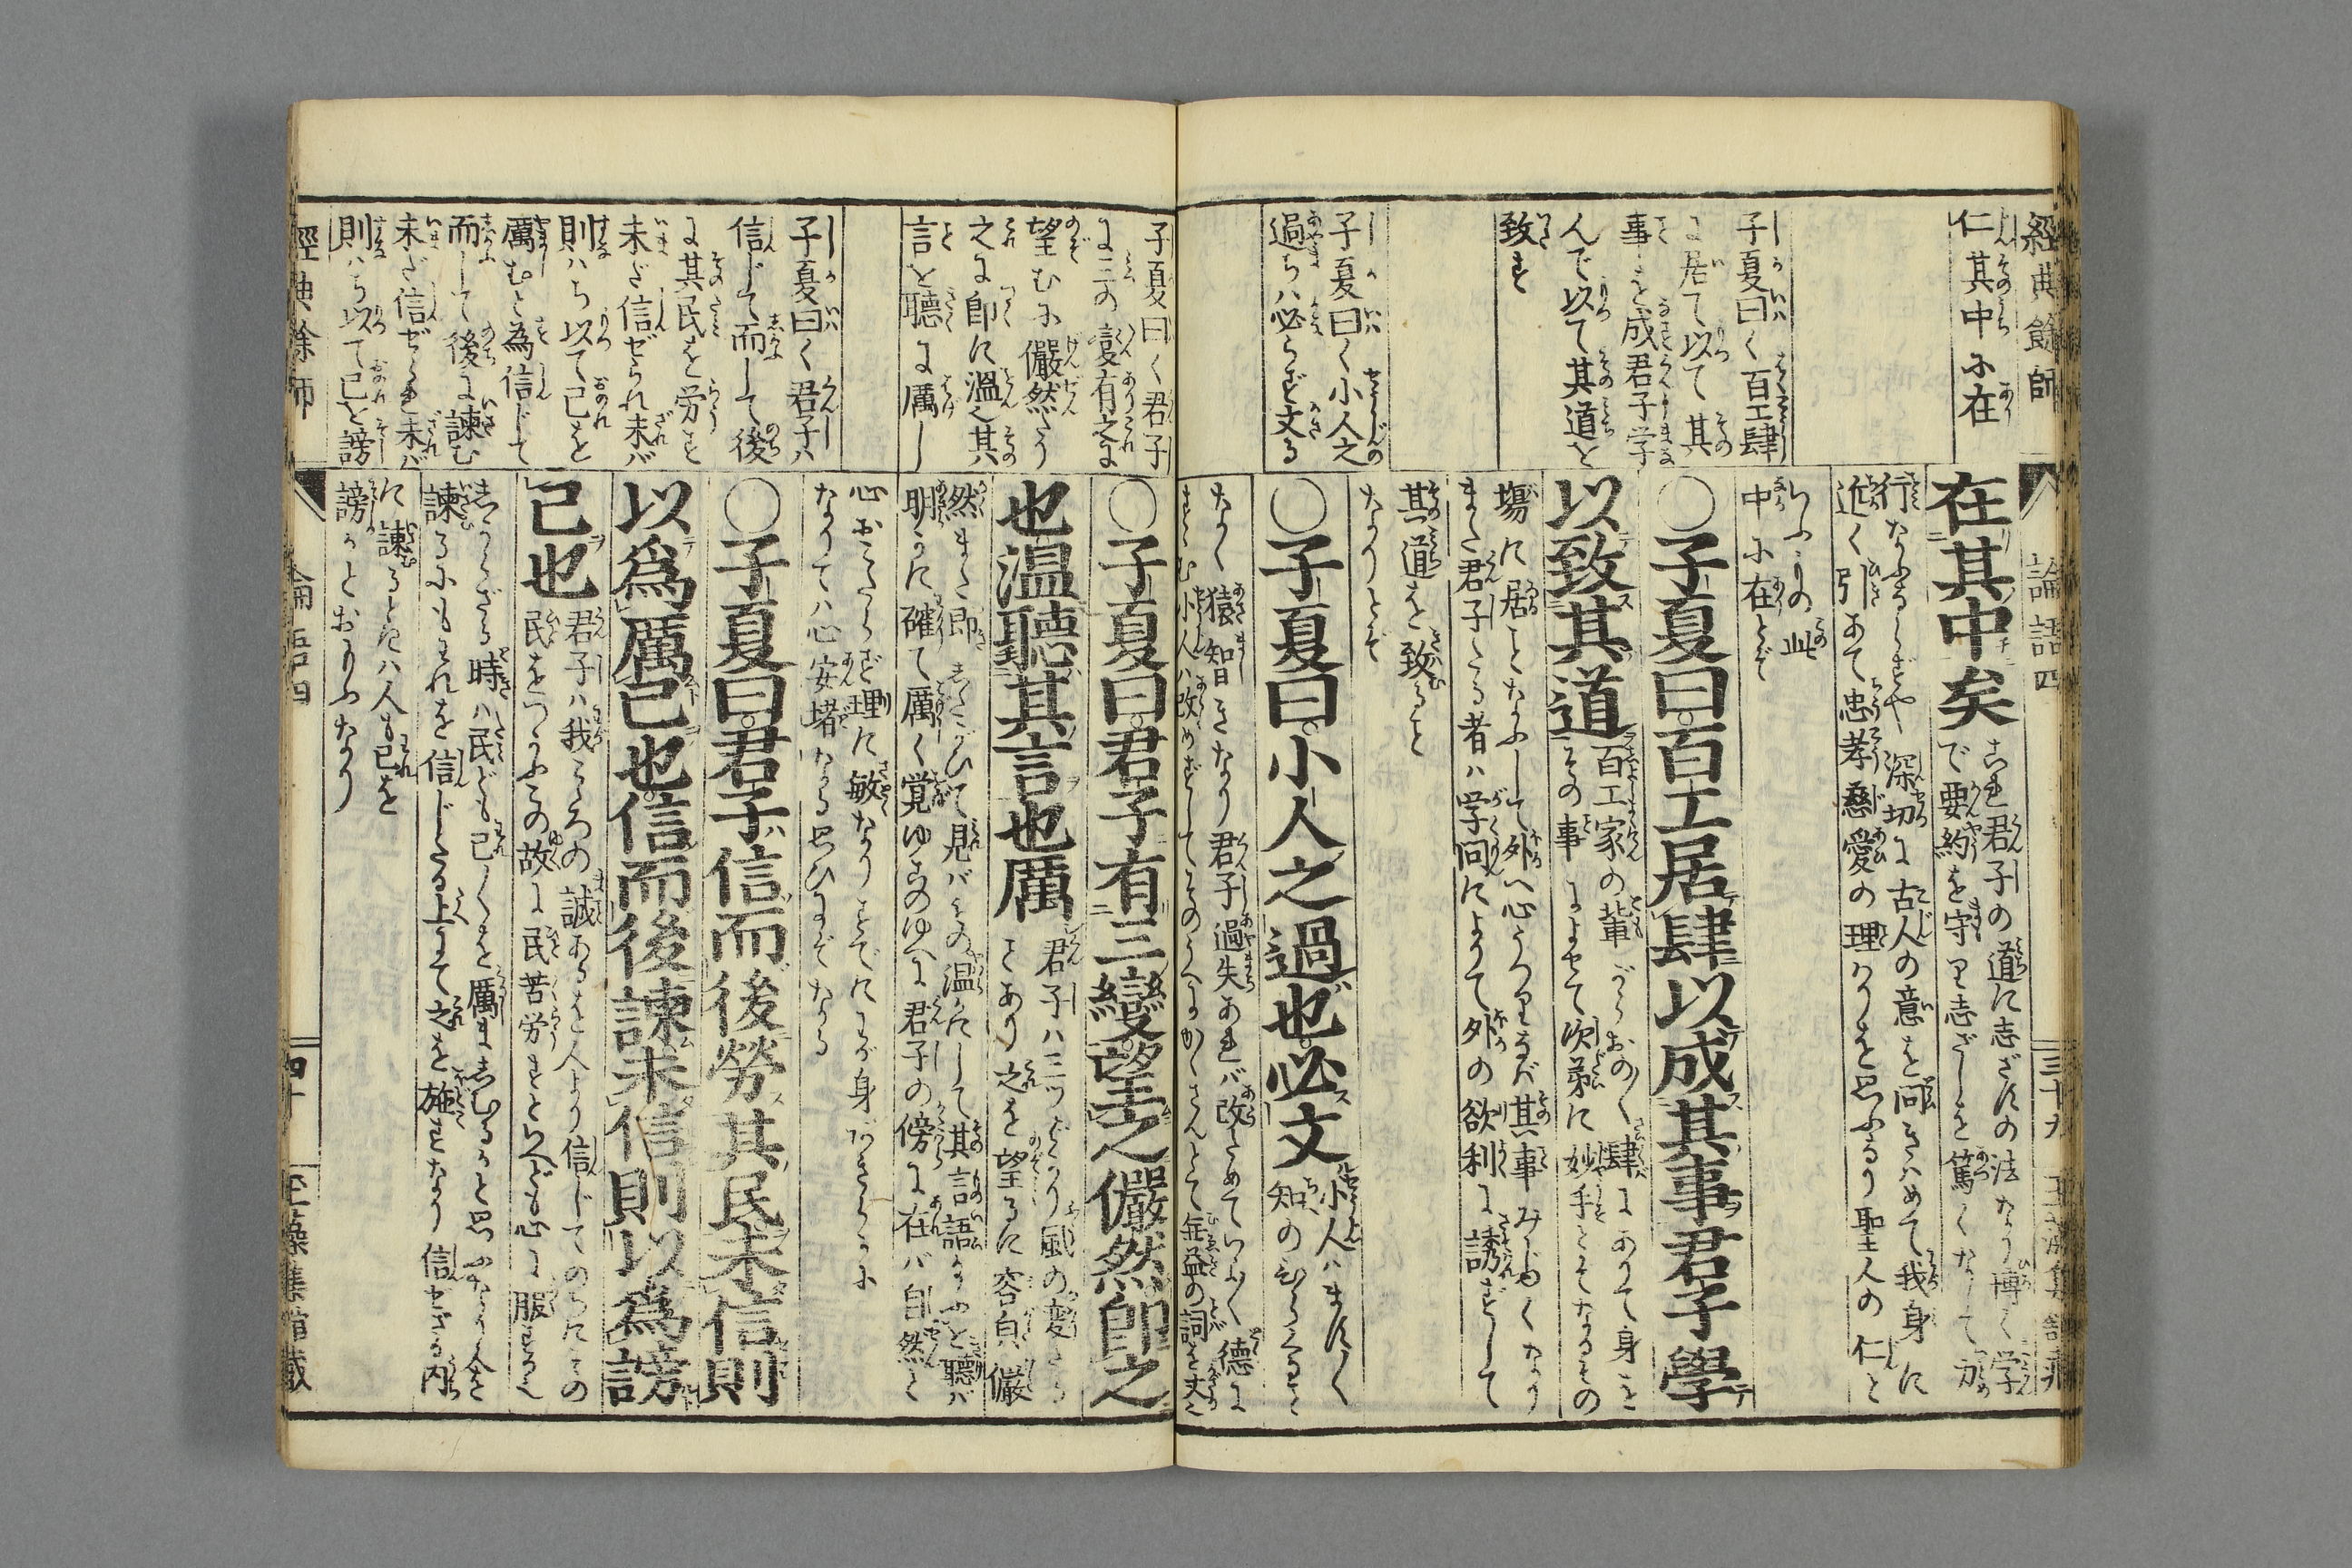 經典餘師
論語四
三十九
仁其中に在
在其中矣
これ君子の道に志ざすの法なり博く学
で要約を守り志ざしを篤くなして力
行なふるらずや深切に古人の意を問きはめて我身に
近く引あて忠孝慈愛の理はりを思ふなり聖人の仁と
いふもの此
中に在とぞ
子夏曰く百工肆
に居て以て其
事を成君子学
んで以て其道を
致す
〇子夏曰百工居肆以成其事君子學
以致其道
百工家の輩がらおの〱肆にありて身を
その事によせて次第に妙手とそなるその
場に居ことなふして外へ心うつりなば其事みじゆくなり
また君子たる者は学問によりて外の欲利に誘ずして
其道を致ると
なりとぞ
子夏曰く小人之
過ちハ必らず文る
〇子夏曰小人之過也必文
小人はます〱
知のひらくるを
なく猿智きなり君子過失あればあらためていよ〱徳に
すゝむ小人ハ改めずしてそのうへにかくさんとて無益の詞を文る
子夏曰く君子
に三の變有之を
望むに儼然たり
之に即に溫く其
言を聽に厲し
〇子夏曰君子有三變望之儼然即之
也温聽其言也厲
君子ハ三ツどをり風の変たる
とあり之を望るに容皃儼
然また即したがひて見バその温かにして其言語なにを聽バ
明かに確て厲く覚ゆるのゆへに君子の傍に在バ自然と
心おこたらず理に敏なりすでにわが身あきらかに
なりてハ心安堵なる思ひにぞなる
子夏曰く君子ハ
信じて而して後
に其民を労す
未だ信ぜられ未バ
則ハち以て己を
厲むと為信じて
而して後に諫む
未だ信ぜられ未バ
則ハち以て己を謗
〇子夏曰君子信而後勞其民未信則
以爲厲己也信而後諫未信則以爲謗
己也
君子ハ我こゝろの誠あるを人より信じてのちにその
民をつかふその故に民苦労すといへども心に服するへ
しからざる時ハ民ども己〱を厲ましむると思ふなり余を
諫るにもわれを信じたる上にて之を施すなり信せざる内
に諫るときハ人も己を
謗るとおもふなり
經典餘師
論語四
四十